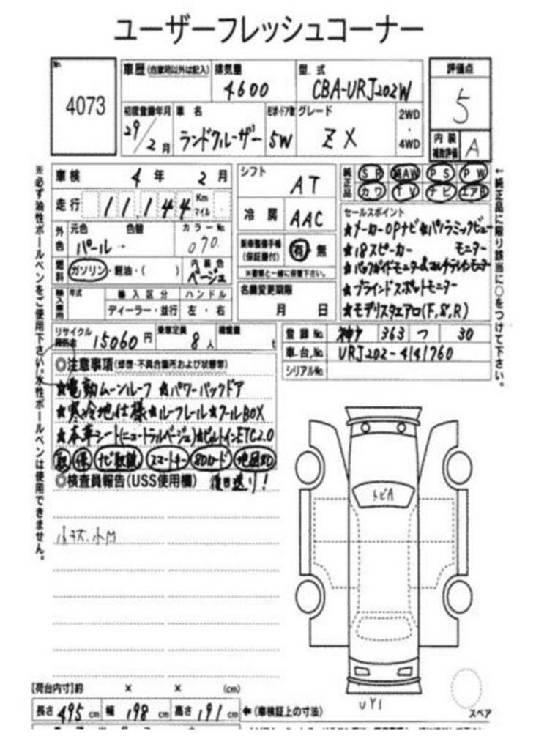 ユーザーフレッシュコーナー
No. 4073
車歴 (自家用以外は記入)
排気量 4600
型式 CBA-URJ202W
評価点 5
初度登録年月 29/2月
車名 ランドクルーザー
形状・ドア数 5W
グレード ZX
2WD・4WD
内装補助評価 A
車検 4年 2月
シフト AT
純正品 SR AW PS PW
カワ TV ナビ エアB
走行 11,144 Km マイル
冷房 AAC
セールスポイント
外色 元色 パール 色替・ カラーNo. 070
★メーカーOPナビ★パノラミックビューモニター
新車整備手帳(保証書付) 有・無
★18スピーカー
燃料 ガソリン・軽油・( ) 内装色 ベージュ
★ブラインドスポットモニター
輸入車用 年式 輸入区分 ディーラー・並行 ハンドル 左・右
名義変更期限 月 日
★モデリスタエアロ(F,S,R)
リサイクル預託金 15060円 乗車定員 8人 積載量 t
登録No. 363 つ 30
車台No. URJ202-4141760
シリアルNo.
◎注意事項(修理・不具合箇所および状態等)
★電動ムーンルーフ ★パワーバックドア
★寒冷地仕様★ルーフレール★クールBOX
★本革シート(ニュートラルベージュ)★ビルトインETC2.0
取 保 ナビ取説 スマートキー SDカード 地図SD
◎検査員報告(USS使用欄) 後日送り!
小キズ、小凹
トビA
[荷台内寸]約 × × (cm)
長さ 495 cm 幅 198 cm 高さ 191 cm ←(車検証上の寸法)
UY1
スペア
※必ず油性ボールペンをご使用下さい。水性ボールペンは使用できません。
↑純正品に限り該当に○をつけて下さい。